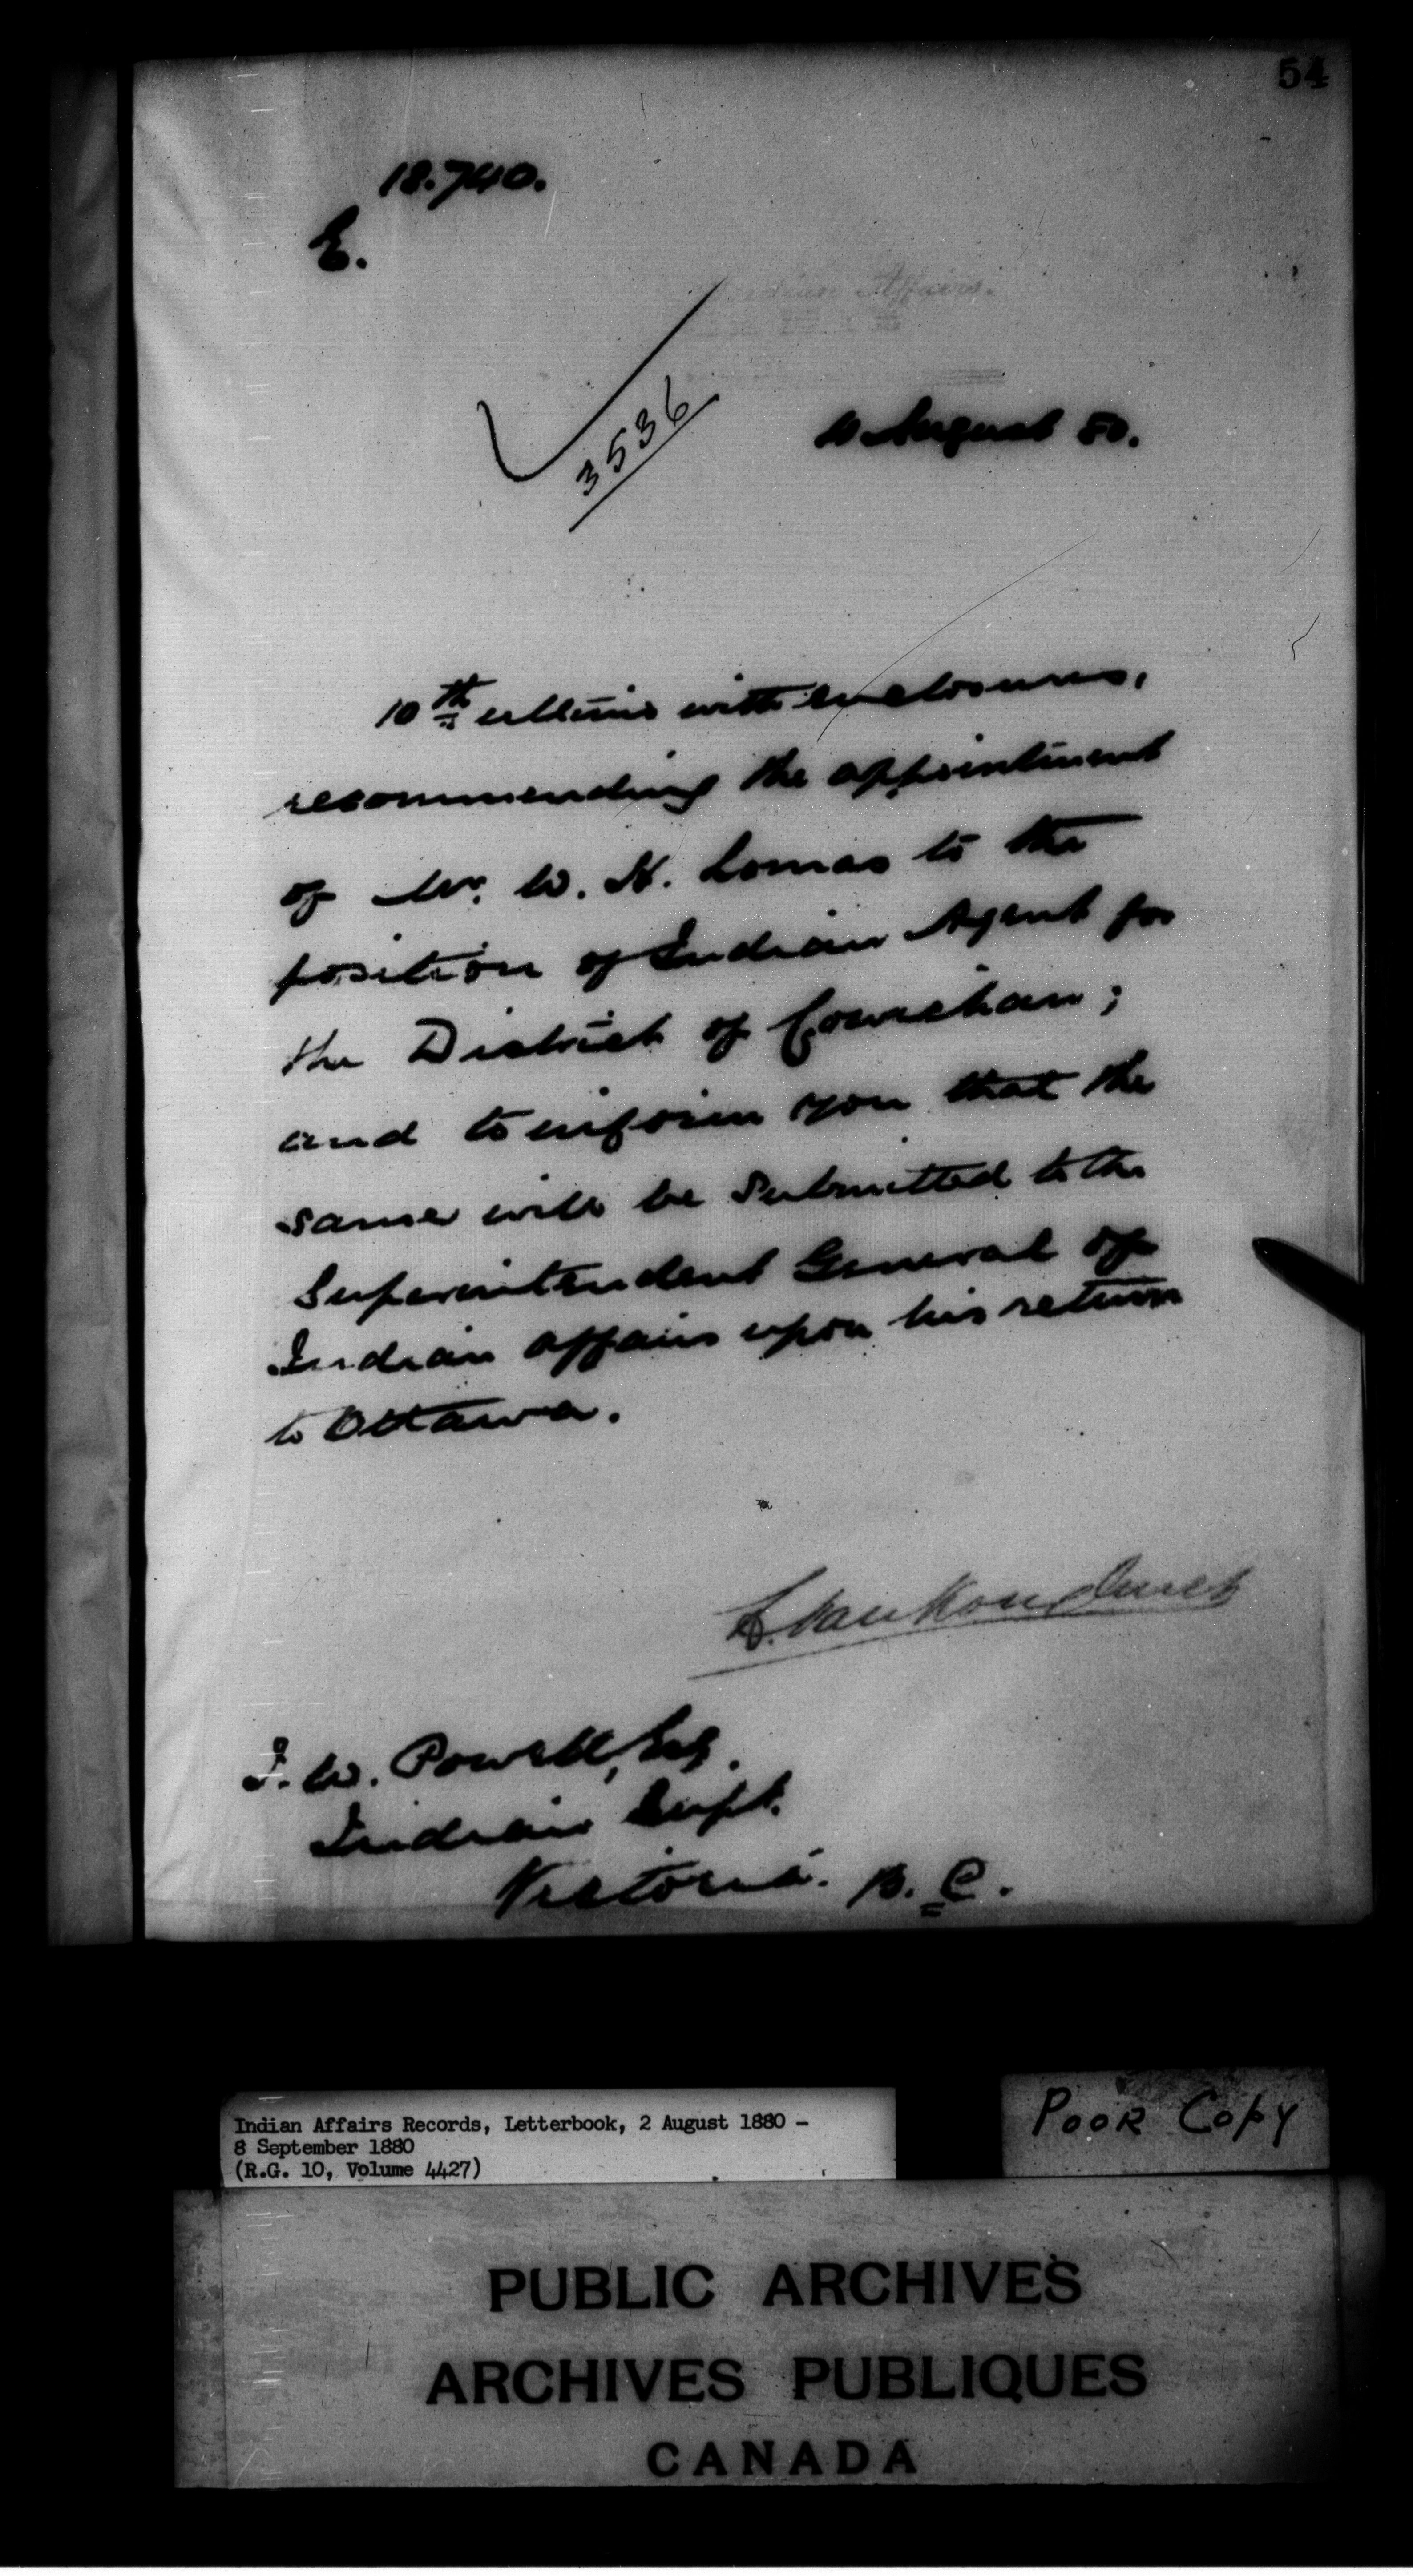 54
18.740.
E.
Indian Affairs.
3536
10 August 80.
10th ultimo with enclosures,
recommending the appointment
of Mr. W. H. Lomas to the
position of Indian Agent for
the District of Cowichan;
and to inform you that the
same will be submitted to the
Superintendent General of
Indian affairs upon his return
to Ottawa.
L. Vankoughnet
I. W. Powell, Esq.
Indian Supt.
Victoria. B. C.
Indian Affairs Records, Letterbook, 2 August 1880 -
8 September 1880
(R.G. 10, Volume 4427)
POOR COPY
PUBLIC ARCHIVES
ARCHIVES PUBLIQUES
CANADA